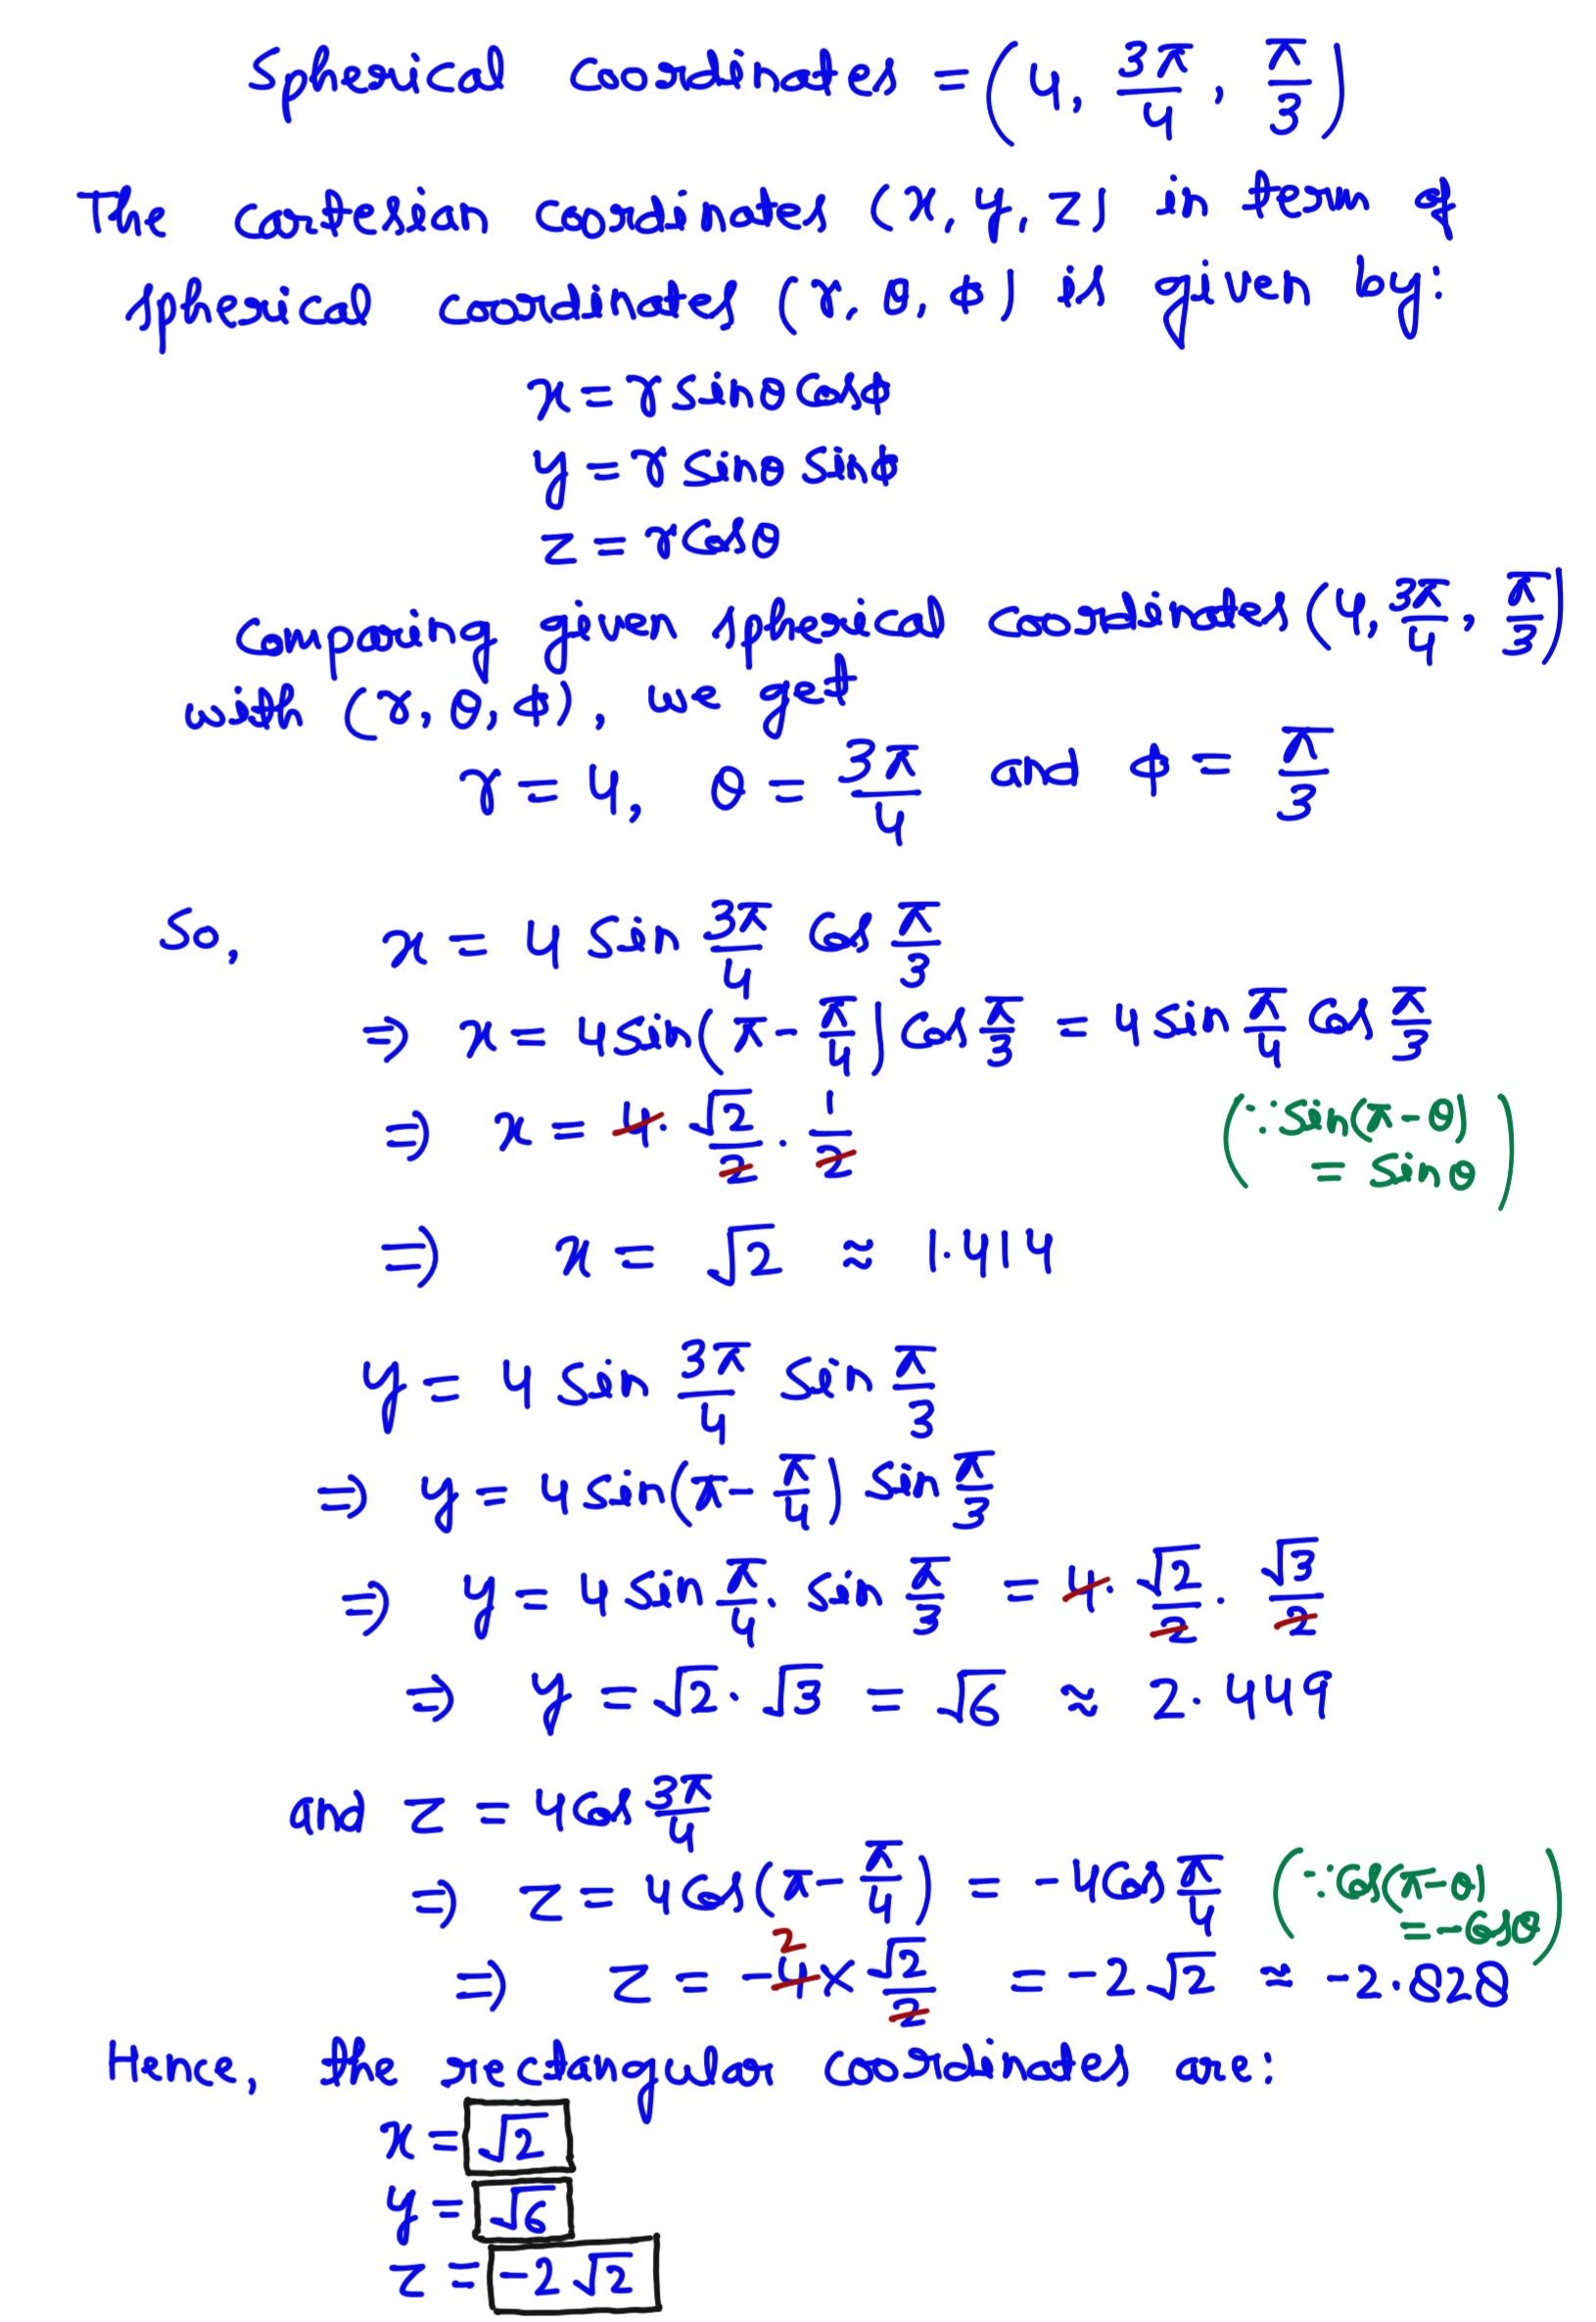 Spherical coordinates = (4, 3π/4, π/3)
The cartesian coordinates (x, y, z) in term of
spherical coordinates (r, θ, ϕ) is given by:
x = r sinθ cosϕ
y = r sinθ sinϕ
z = r cosθ
Comparing given spherical coordinates (4, 3π/4, π/3)
with (r, θ, ϕ), we get
r = 4, θ = 3π/4 and ϕ = π/3
So, x = 4 sin 3π/4 cos π/3
⇒ x = 4 sin(π - π/4) cos π/3 = 4 sin π/4 cos π/3
⇒ x = 4 · √2/2 · 1/2 (∵ sin(π-θ)
= sinθ)
⇒ x = √2 ≈ 1.414
y = 4 sin 3π/4 sin π/3
⇒ y = 4 sin(π - π/4) sin π/3
⇒ y = 4 sin π/4 · sin π/3 = 4 · √2/2 · √3/2
⇒ y = √2 · √3 = √6 ≈ 2.449
and z = 4 cos 3π/4
⇒ z = 4 cos(π - π/4) = -4 cos π/4 (∵ cos(π-θ)
= -cosθ)
2
⇒ z = -4 × √2/2 = -2√2 ≈ -2.828
Hence, the rectangular coordinates are:
x = √2
y = √6
z = -2√2